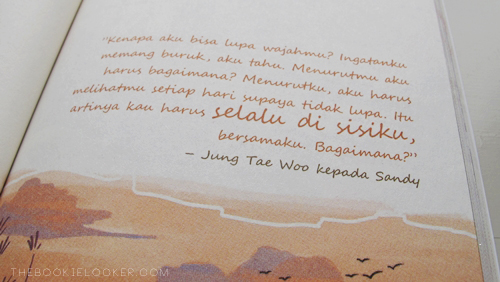 "Kenapa aku bisa lupa wajahmu? Ingatanku
memang buruk, aku tahu. Menurutmu aku
harus bagaimana? Menurutku, aku harus
melihatmu setiap hari supaya tidak lupa. Itu
artinya kau harus selalu di sisiku,
bersamaku. Bagaimana?"
– Jung Tae Woo kepada Sandy
THEBOOKIELOOKER.COM